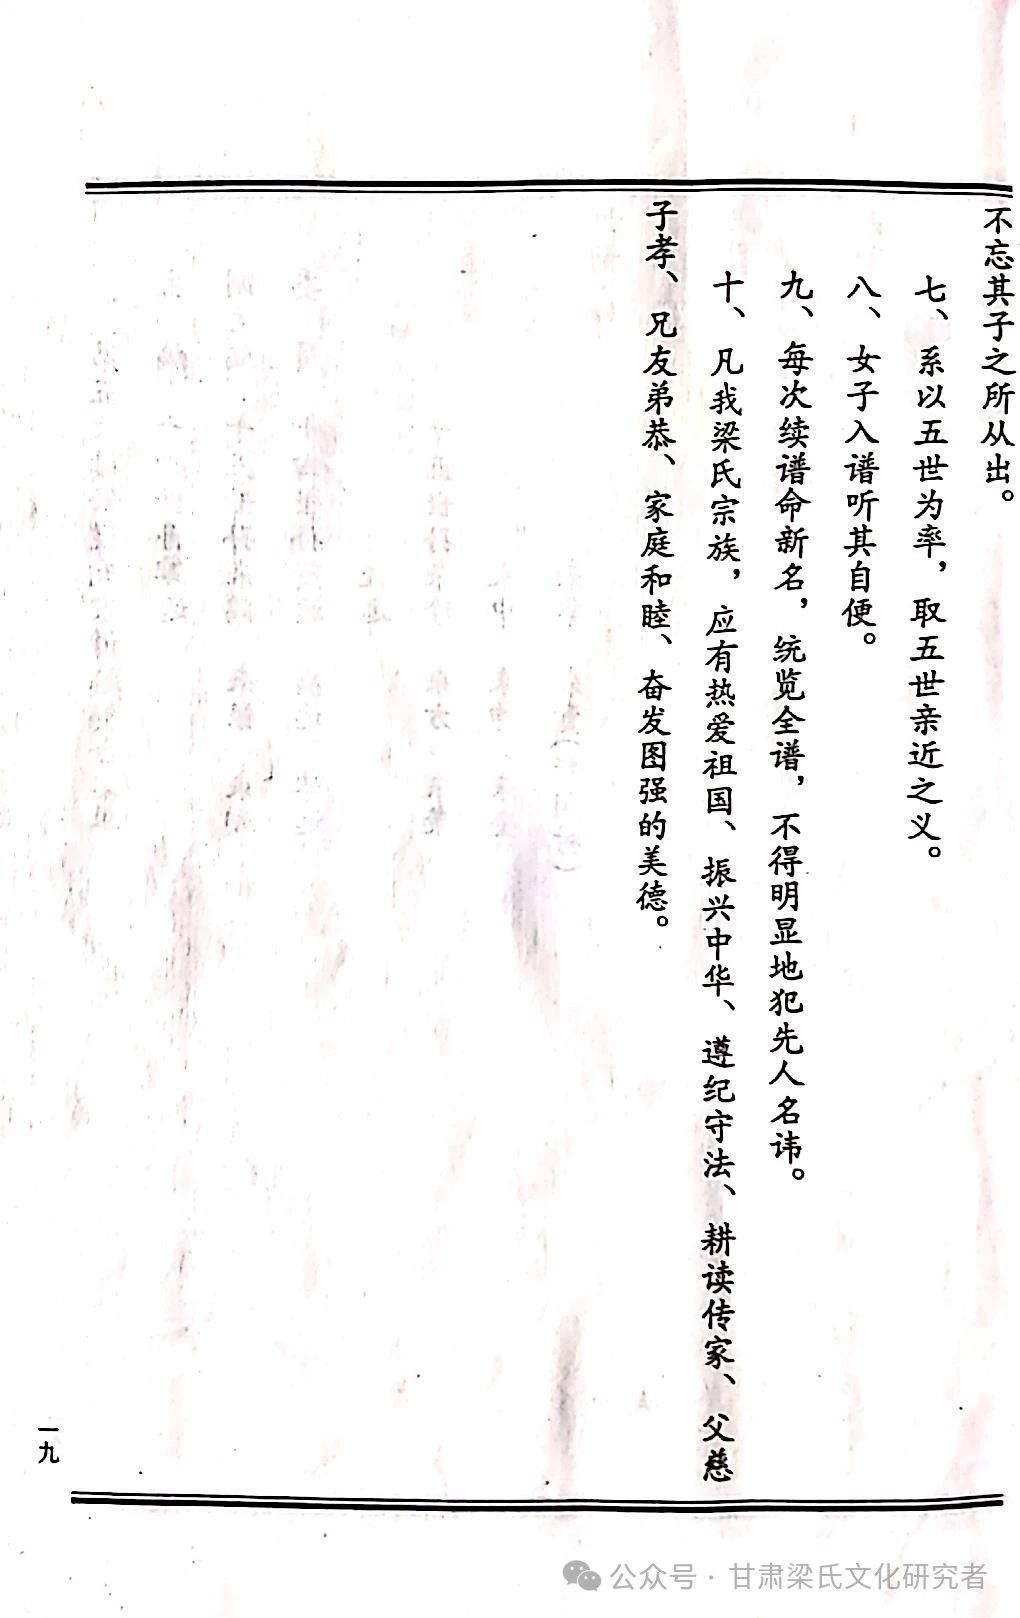 不忘其子之所从出。
七、系以五世为率，取五世亲近之义。
八、女子入谱听其自便。
九、每次续谱命新名，统览全谱，不得明显地犯先人名讳。
十、凡我梁氏宗族，应有热爱祖国、振兴中华、遵纪守法、耕读传家、父慈
子孝、兄友弟恭、家庭和睦、奋发图强的美德。
一九
公众号·甘肃梁氏文化研究者